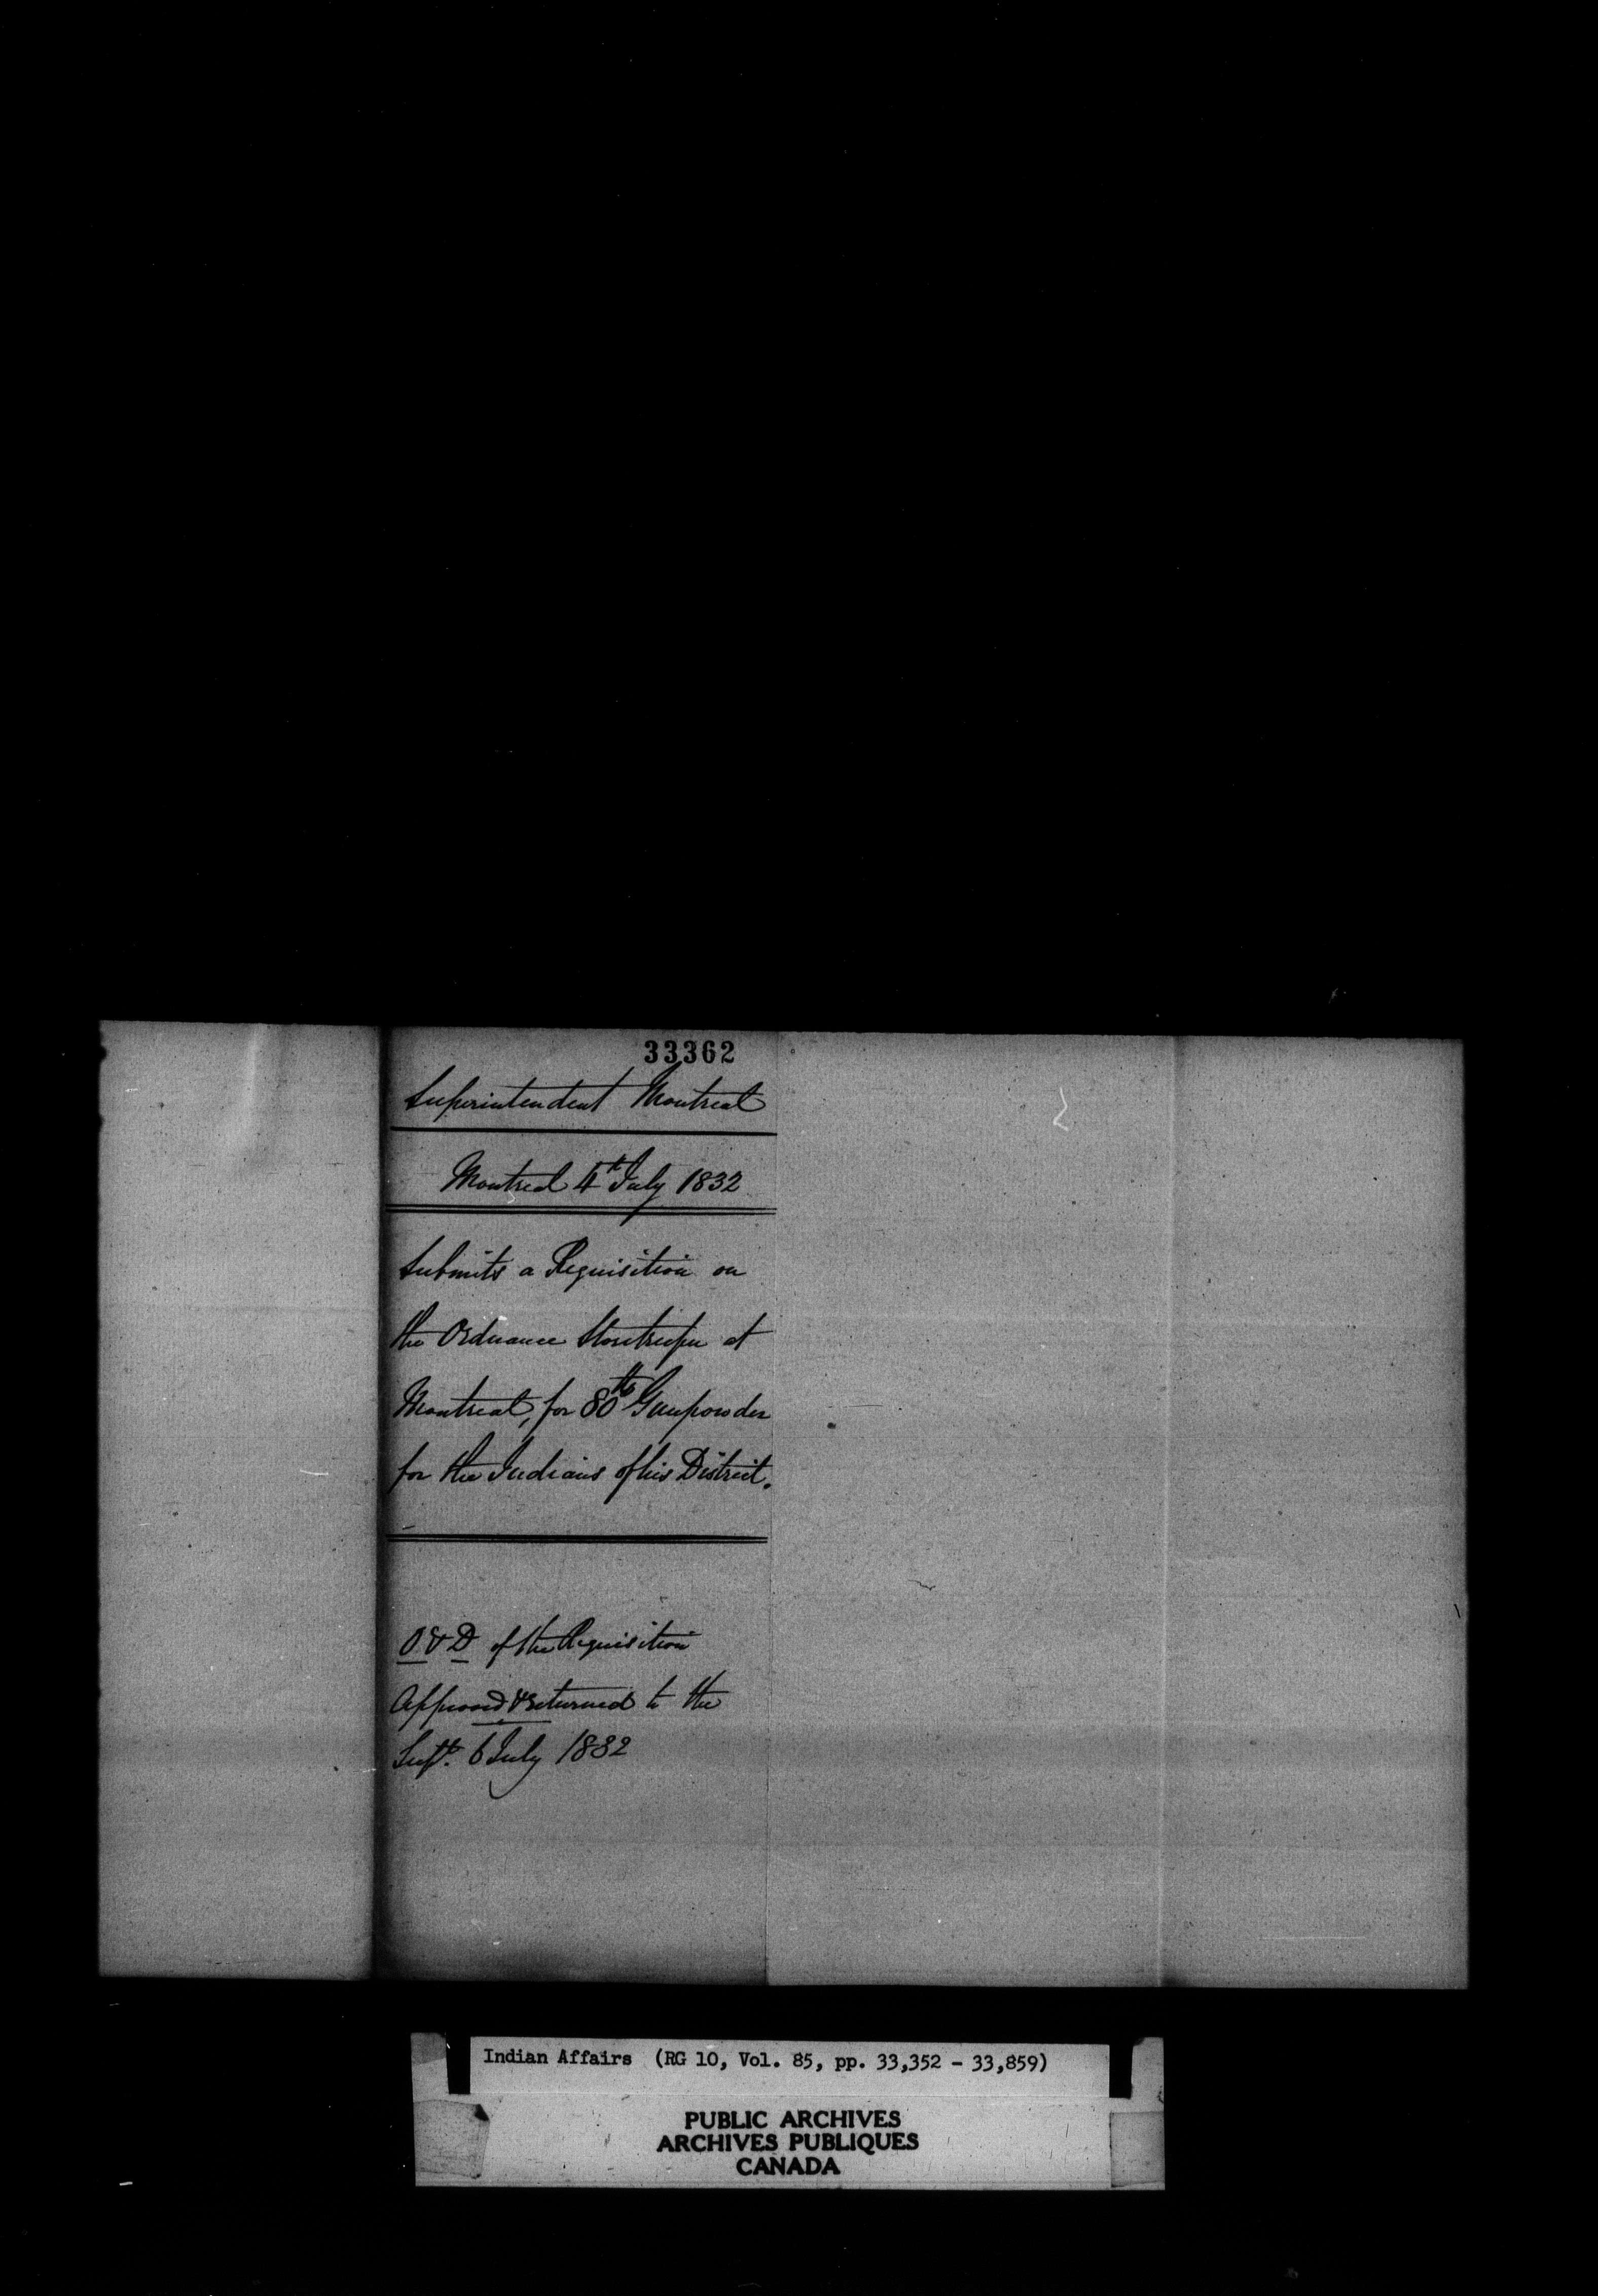 33362
Superintendent Montreal
Montreal 4th July 1832
Submits a Requisition on
the Ordnance Storekeeper at
Montreal, for 80 lb Gunpowder
for the Indians of his District.
O & D of the Requisition
Approved & returned to the
Supt. 6 July 1832
Indian Affairs (RG 10, Vol. 85, pp. 33,352 - 33,859)
PUBLIC ARCHIVES
ARCHIVES PUBLIQUES
CANADA